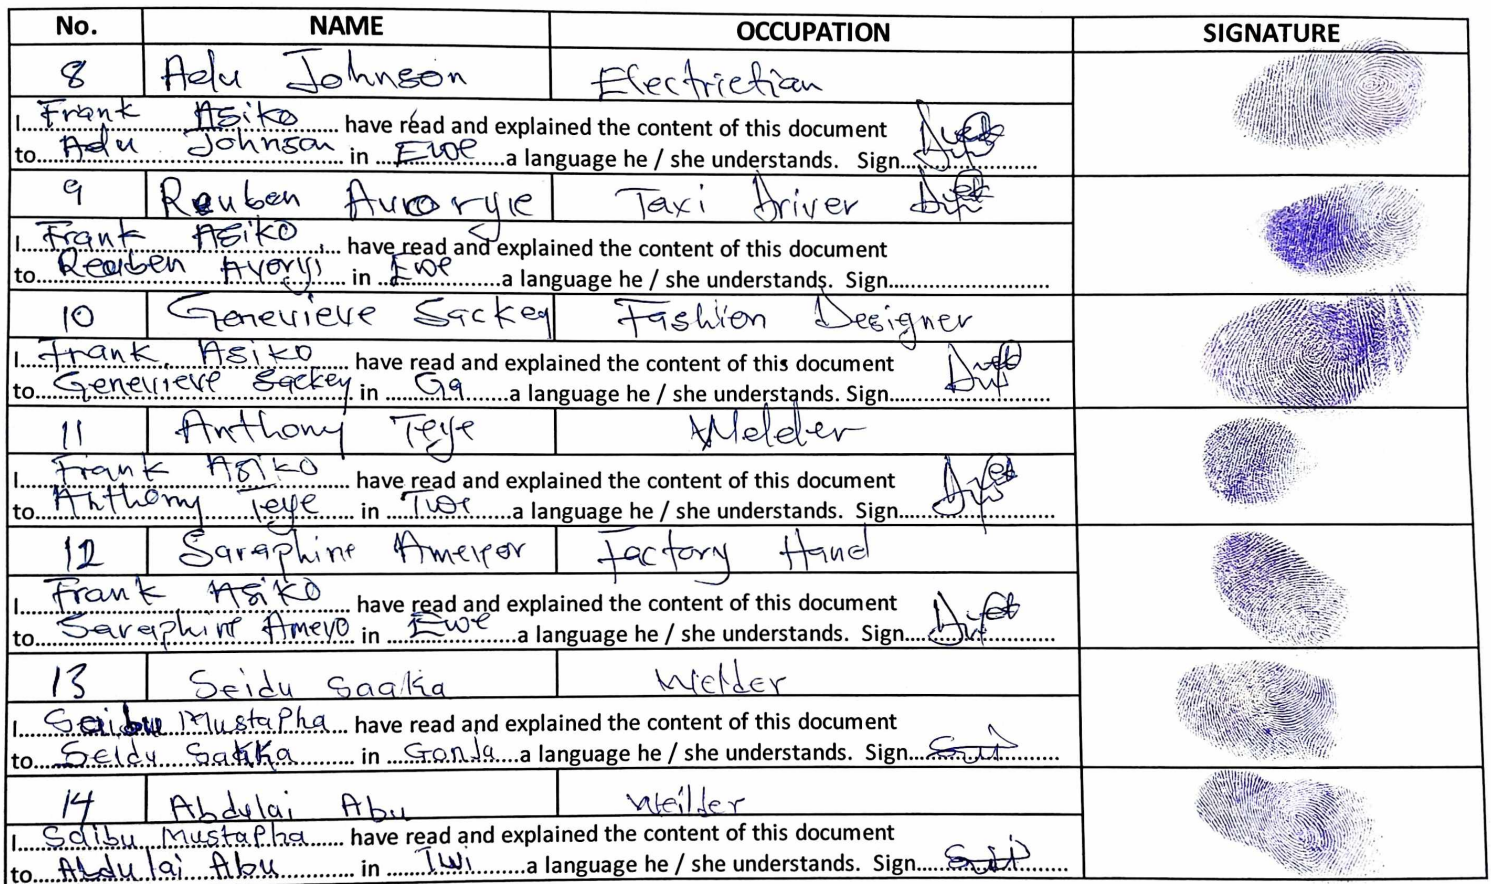 No. NAME OCCUPATION SIGNATURE
8 Adu Johnson Electrietian
I....Frank Asiko.... have read and explained the content of this document
to....Adu Johnson.... in ....Ewe....a language he / she understands. Sign....
9 Reuben Taxi Driver
I....Frank Asiko.... have read and explained the content of this document
to....Reuben Avoryi.... in ....Ewe....a language he / she understands. Sign....
10 Genevieve Sackey Fashion Designer
I....Frank Asiko.... have read and explained the content of this document
to....Genevieve Sackey.... in ....Ga....a language he / she understands. Sign....
11 Anthony Teye Welder
I....Frank Asiko.... have read and explained the content of this document
to....Anthony Teye.... in ........a language he / she understands. Sign....
12 Saraphine Factory Hand
I....Frank Asiko.... have read and explained the content of this document
to....Saraphine Amevo.... in ....Ewe....a language he / she understands. Sign....
13 Seidu Saaka Welder
I.... Mustapha.... have read and explained the content of this document
to....Seidu Sakka.... in ....Gonja....a language he / she understands. Sign....
14 Abdulai Abu Weilder
I....Saibu Mustapha.... have read and explained the content of this document
to....Abdulai Abu.... in ....Twi....a language he / she understands. Sign....